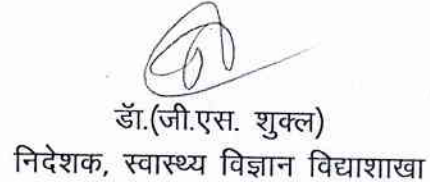 डॅा.(जी.एस. शुक्ल)
निदेशक, स्वास्थ्य विज्ञान विद्याशाखा